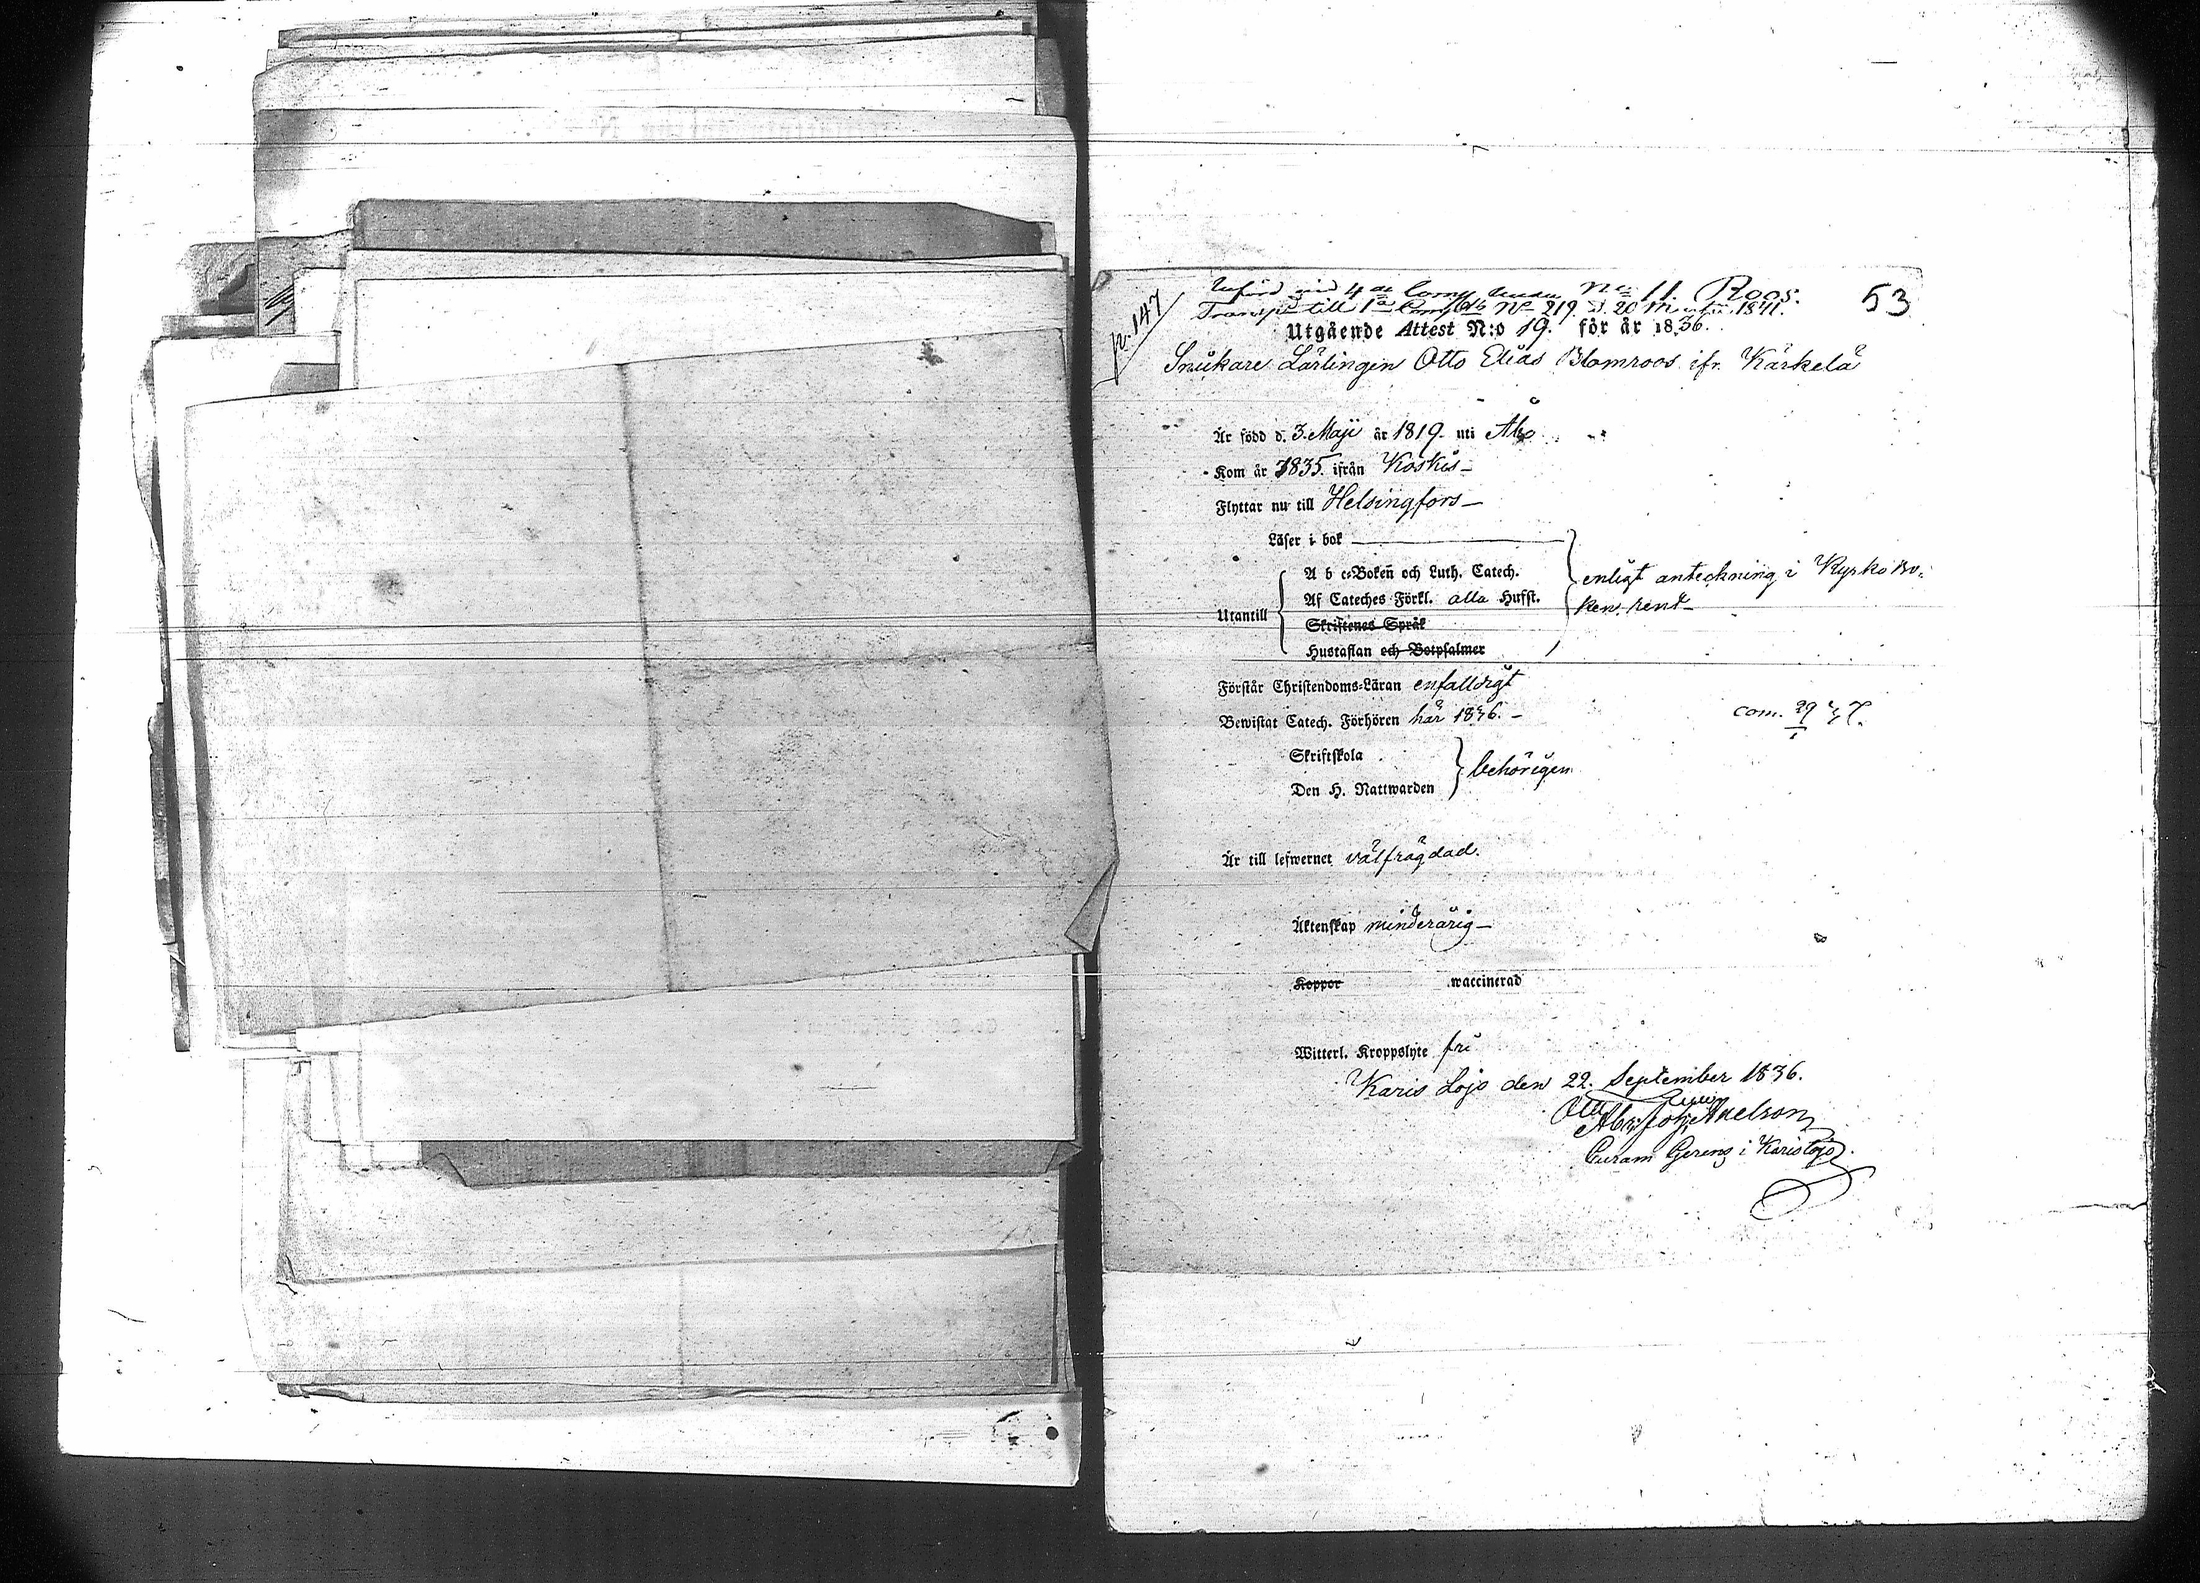 53
p. 147
Införd vid 4de Comp. under No 11. Roos.
Transp. till 1a Comp. No 219. d. 20 1841.
Utgående Attest N:o 19. för år 1836.
Snickare Lärlingen Otto Elias Blomroos ifr. Kärkelä
Är född d. 3. Maji år 1819. uti Åbo
Kom år 1835. ifrån Koskis
Flyttar nu till Helsingfors
Läser i bok
A b c-Boken och Luth. Catech.
Af Cateches Förkl. alla Hufst.
Utantill
Skriftenes Språk
Hustaflan och Botpsalmer
enligt anteckning i Kyrko Bo-
ken, rent
Förstår Christendoms-Läran enfalldigt
Bewistat Catech. Förhören här 1836.
com. 29
Skriftskola
Den H. Nattwarden
behörigen
Är till lefwernet välfrägdad.
Äktenskap minderårig
Koppor waccinerad
Witterl. Kroppslyte fri
Karis Lojo den 22. September 1836.
Curam Gerens i Karislojo.